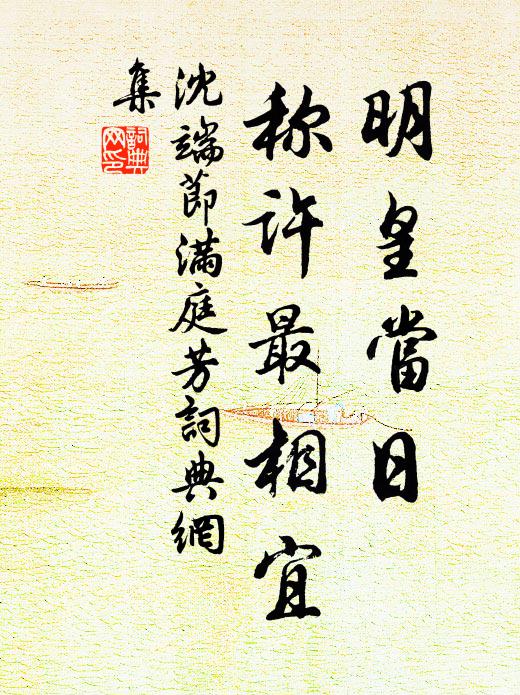 明皇當日
称許最相宜
沈端節滿庭芳詞典網
集
詞典网印